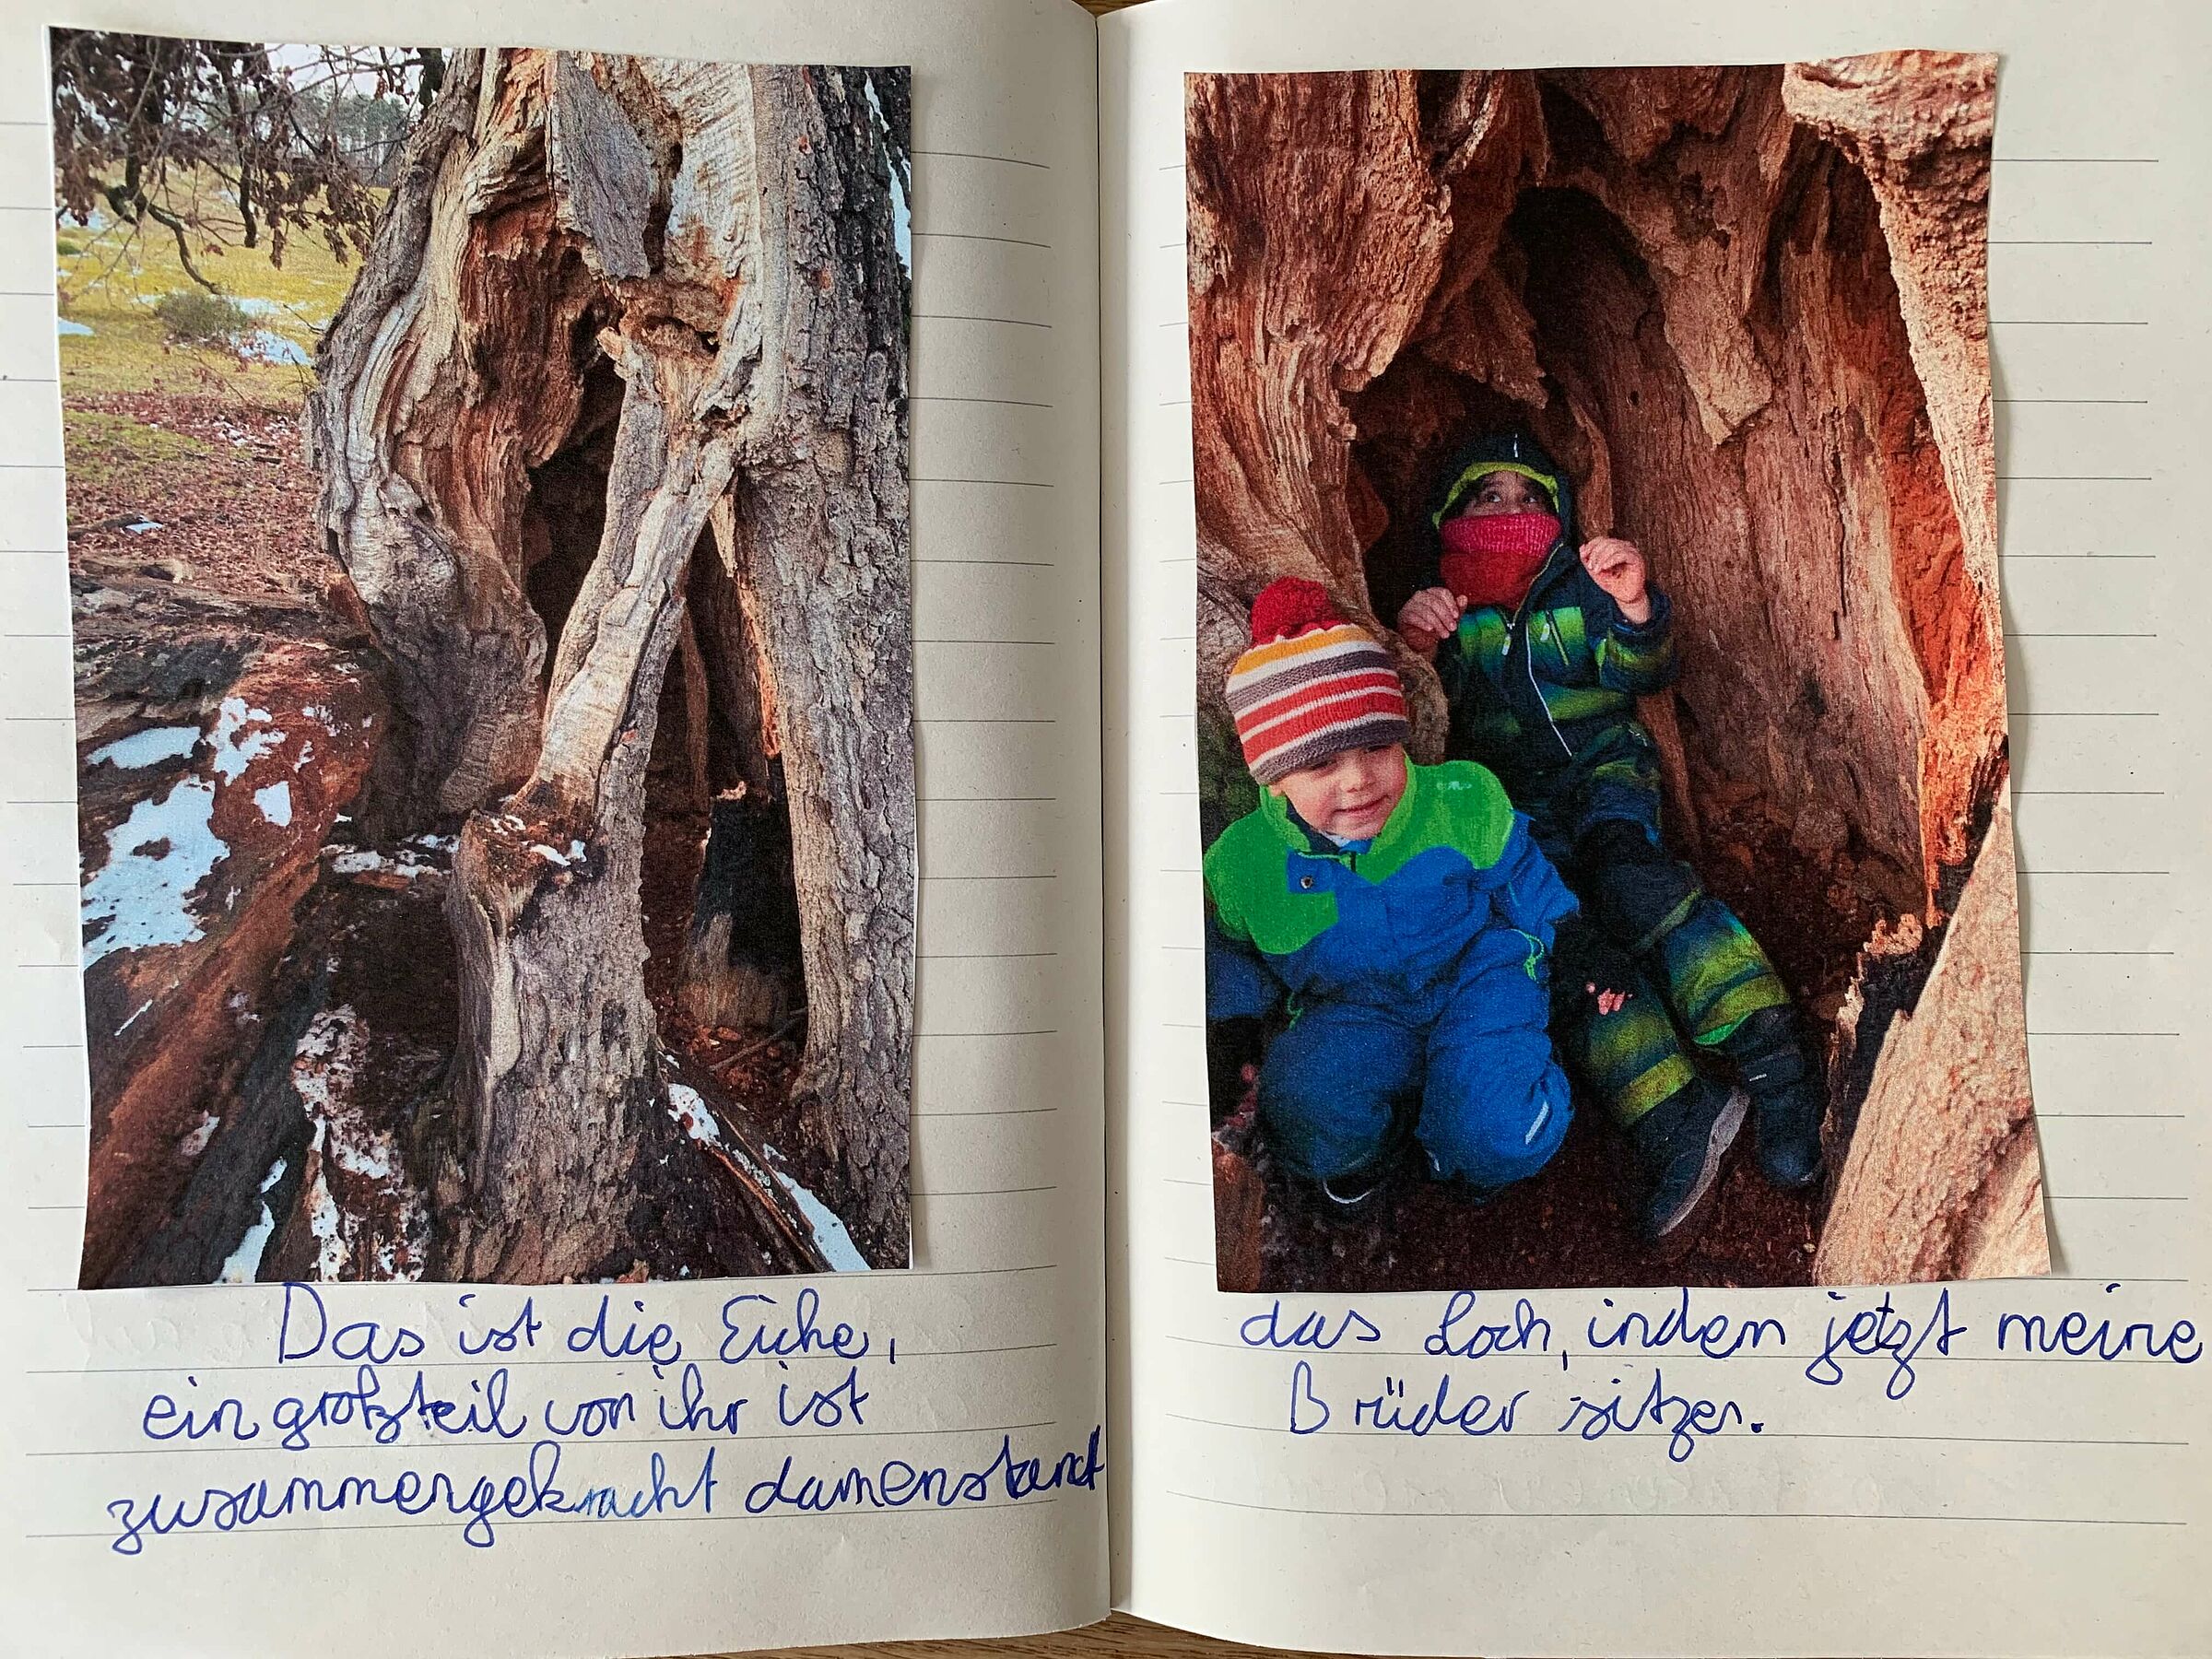 Das ist die Eiche,
ein großzteil von ihr ist
zusammengekracht damenstand
das Loch, inden jetzt meine
Brüder sitzen.